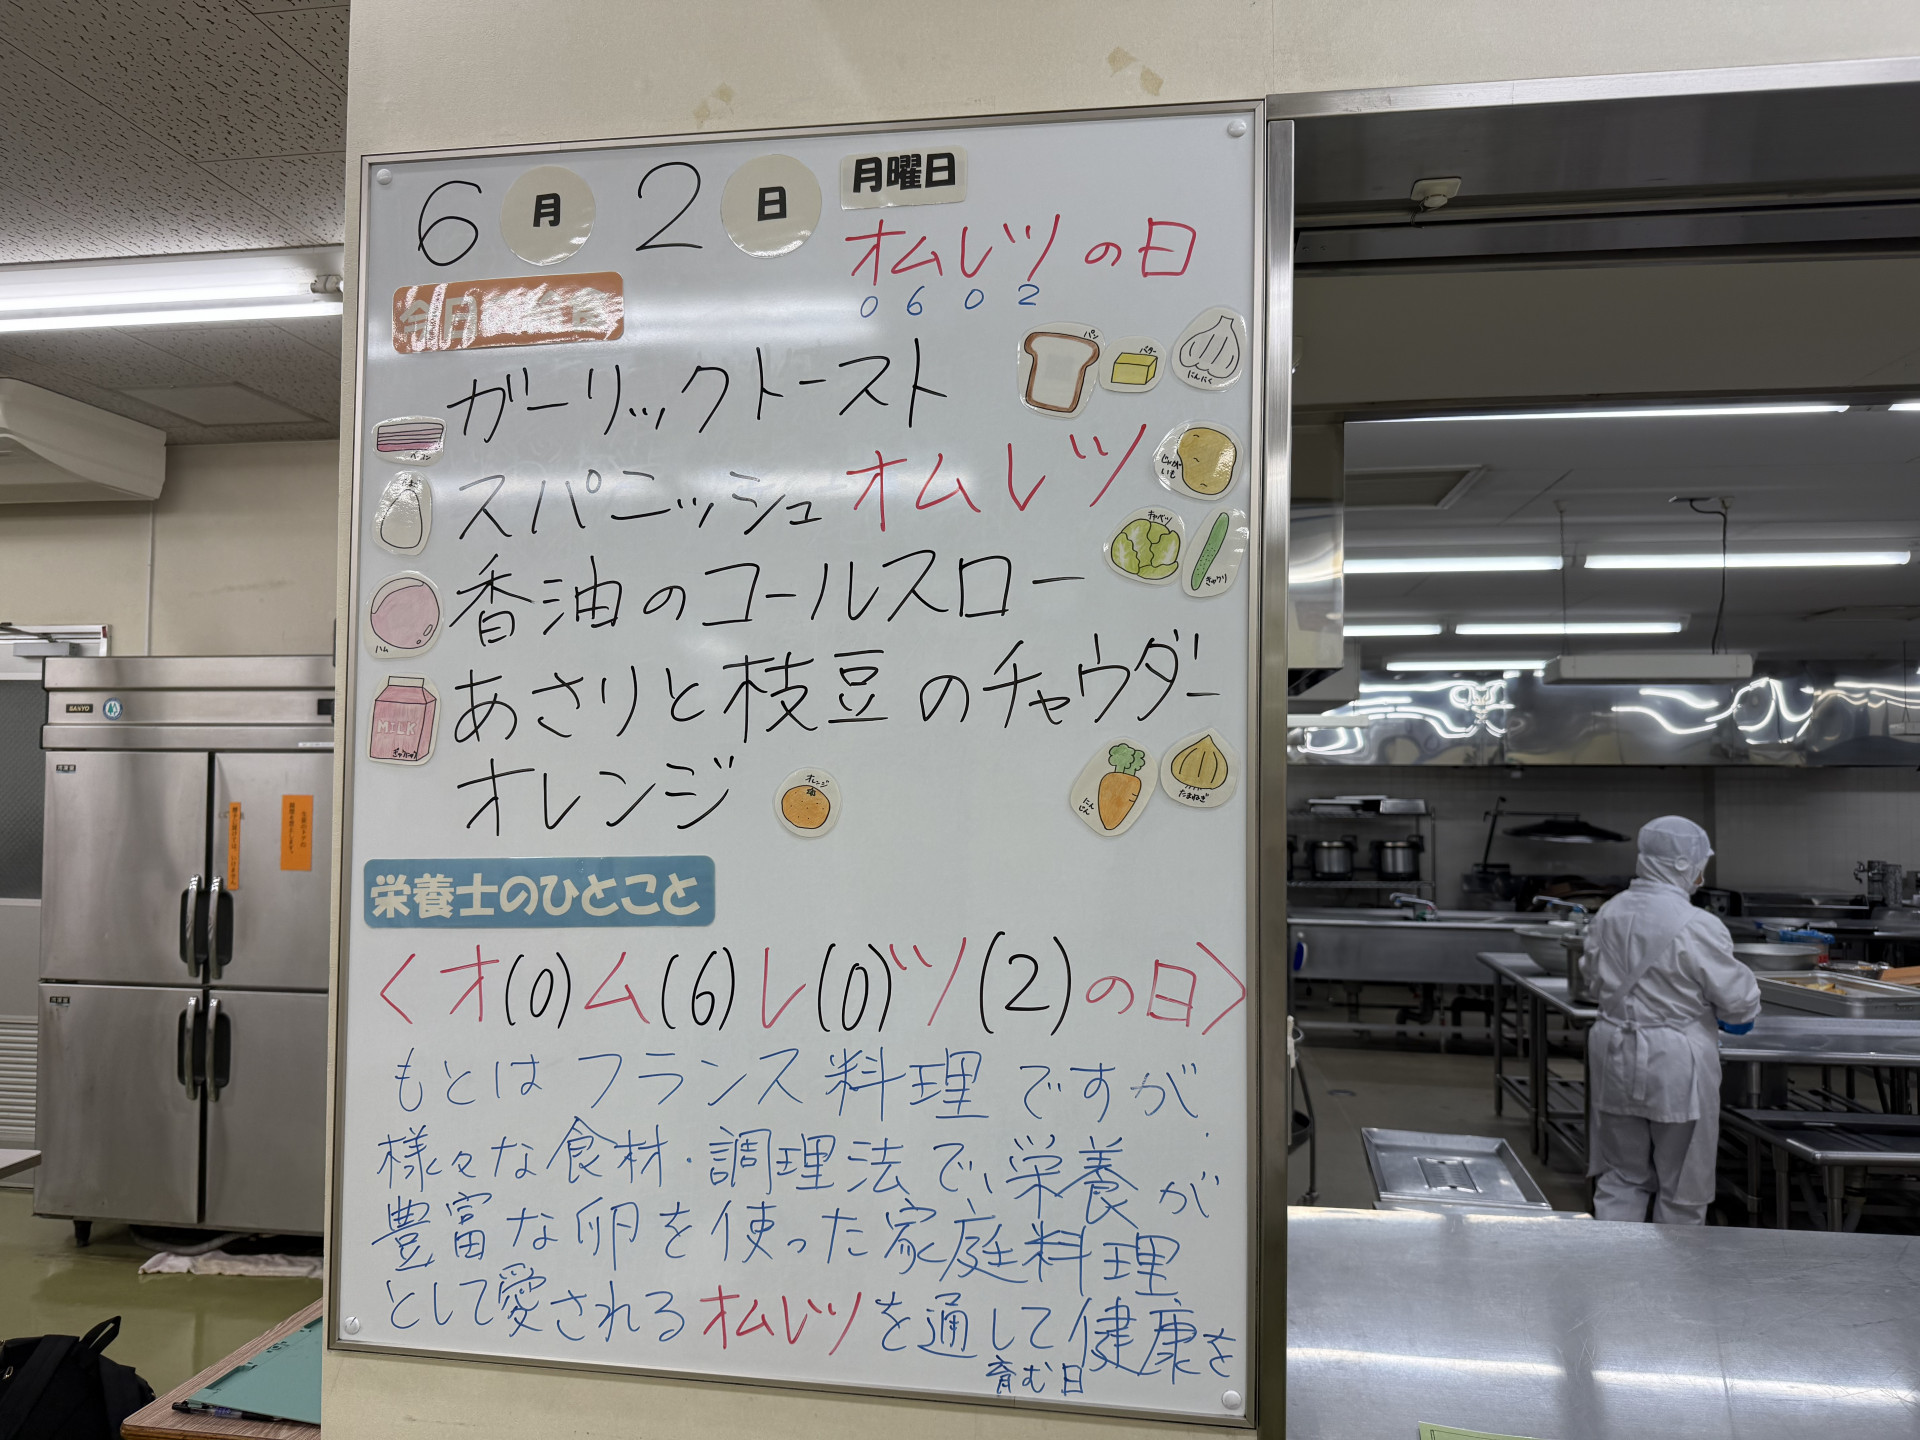 6月2日 月曜日
オムレツの日
0 6 0 2
今日の給食
ガーリックトースト
パン
バター
にんにく
スパニッシュオムレツ
ベーコン
じゃがいも
香油のコールスロー
キャベツ
きゅうり
ハム
あさりと枝豆のチャウダー
MILK
ぎゅうにゅう
オレンジ
オレンジ
にんじん
たまねぎ
栄養士のひとこと
〈オ(0)ム(6)レ(0)ツ(2)の日〉
もとはフランス料理ですが
様々な食材・調理法で、栄養が
豊富な卵を使った家庭料理
として愛されるオムレツを通して健康を
育む日
SANYO